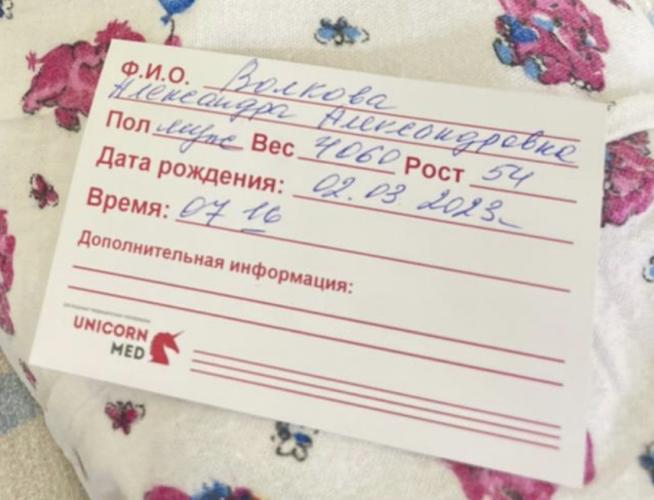 Ф.И.О. Волкова
Александра Александровна
Пол муж Вес 4060 Рост 54
Дата рождения: 02.03.2023
Время: 07 16
Дополнительная информация:
UNICORN
MED